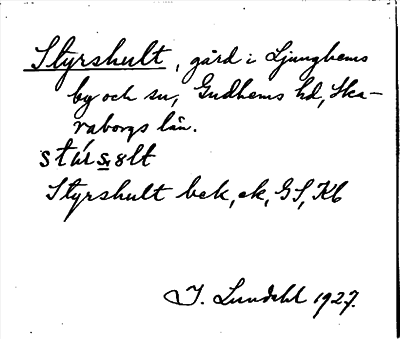 Styrshult, gård i Ljunghems
by och sn, Gudhems hd, Ska-
raborgs län.
Styrshult bek, ek, GS, Kb
J. Lundahl 1927.